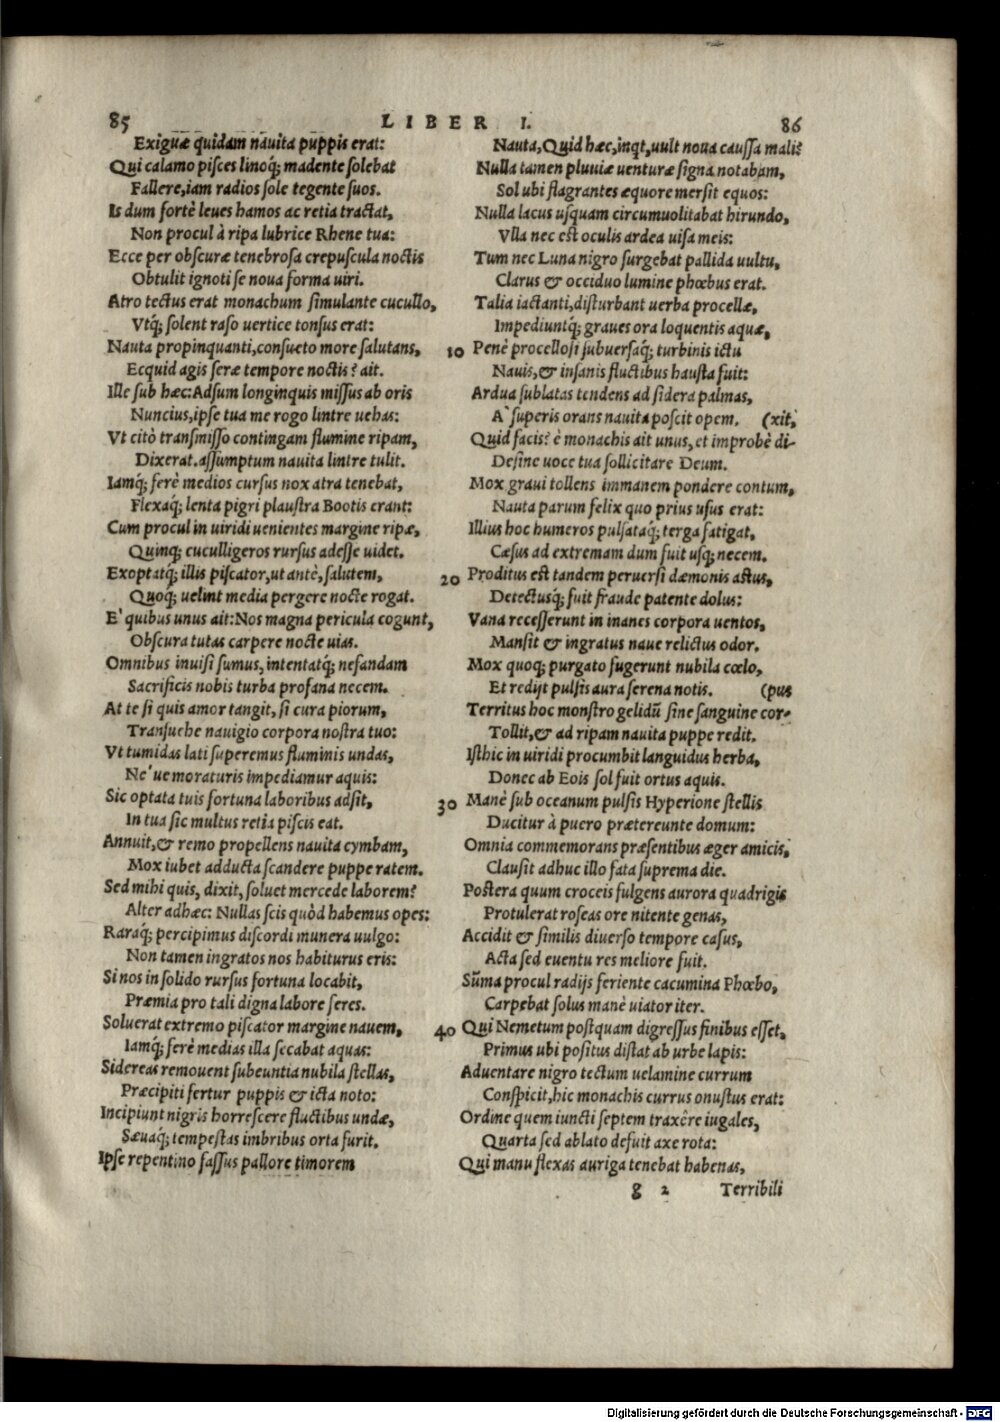 85 LIBER I. 86
Exiguæ quidam nauita puppis erat:
Qui calamo pisces linoq; madente solebat
Fallere, iam radios sole tegente suos.
Is dum fortè leues hamos ac retia tractat,
Non procul à ripa lubrice Rhene tua:
Ecce per obscuræ tenebrosa crepuscula noctis
Obtulit ignoti se noua forma uiri.
Atro tectus erat monachum simulante cucullo,
Vtq́; solent raso uertice tonsus erat:
Nauta propinquanti, consueto more salutans,
Ecquid agis seræ tempore noctis? ait.
Ille sub hæc: Adsum longinquis missus ab oris
Nuncius, ipse tua me rogo lintre uehas:
Vt citò transmisso contingam flumine ripam,
Dixerat. assumptum nauita lintre tulit.
Iamq́; ferè medios cursus nox atra tenebat,
Flexaq́; lenta pigri plaustra Bootis erant:
Cum procul in uiridi uenientes margine ripæ,
Quinq; cuculligeros rursus adesse uidet.
Exoptatq́; illis piscator, ut antè, salutem,
Quoq; uelint media pergere nocte rogat.
E' quibus unus ait: Nos magna pericula cogunt,
Obscura tutas carpere nocte uias.
Omnibus inuisi sumus, intentatq́; nefandam
Sacrificis nobis turba profana necem.
At te si quis amor tangit, si cura piorum,
Transuehe nauigio corpora nostra tuo:
Vt tumidas lati superemus fluminis undas,
Ne' ue moraturis impediamur aquis:
Sic optata tuis fortuna laboribus adsit,
In tua sic multus retia piscis eat.
Annuit, & remo propellens nauita cymbam,
Mox iubet adducta scandere puppe ratem.
Sed mihi quis, dixit, soluet mercede laborem?
Alter adhæc: Nullas scis quòd habemus opes:
Raraq́; percipimus discordi munera uulgo:
Non tamen ingratos nos habiturus eris:
Si nos in solido rursus fortuna locabit,
Præmia pro tali digna labore feres.
Soluerat extremo piscator margine nauem,
Iamq́; ferè medias illa secabat aquas:
Sidereas remouent subeuntia nubila stellas,
Præcipiti fertur puppis & icta noto:
Incipiunt nigris horrescere fluctibus undæ,
Sæuaq́; tempestas imbribus orta furit.
Ipse repentino fassus pallore timorem
Nauta, Quid hæc, inqt, uult noua caussa mali?
Nulla tamen pluuiæ uenturæ signa notabam,
Sol ubi flagrantes æquore mersit equos:
Nulla lacus usquam circumuolitabat hirundo,
Vlla nec est oculis ardea uisa meis:
Tum nec Luna nigro surgebat pallida uultu,
Clarus & occiduo lumine phœbus erat.
Talia iactanti, disturbant uerba procellæ,
Impediuntq́; graues ora loquentis aquæ,
10 Penè procellosi subuersaq́; turbinis ictu
Nauis, & insanis fluctibus hausta fuit:
Ardua sublatas tendens ad sidera palmas,
A` superis orans nauita poscit opem. (xit,
Quid facis? è monachis ait unus, et improbè di-
Desine uoce tua sollicitare Deum.
Mox graui tollens immanem pondere contum,
Nauta parum felix quo prius usus erat:
Illius hoc humeros pulsataq́; terga fatigat,
Cæsus ad extremam dum fuit usq; necem.
20 Proditus est tandem peruersi dæmonis astus,
Detectusq́; fuit fraude patente dolus:
Vana recesserunt in inanes corpora uentos,
Mansit & ingratus naue relictus odor.
Mox quoq; purgato fugerunt nubila cœlo,
Et redijt pulsis aura serena notis. (pus
Territus hoc monstro gelidũ sine sanguine cor-
Tollit, & ad ripam nauita puppe redit.
Isthic in uiridi procumbit languidus herba,
Donec ab Eois sol fuit ortus aquis.
30 Manè sub oceanum pulsis Hyperione stellis
Ducitur à puero prætereunte domum:
Omnia commemorans præsentibus æger amicis,
Clausit adhuc illo fata suprema die.
Postera quum croceis fulgens aurora quadrigis
Protulerat roseas ore nitente genas,
Accidit & similis diuerso tempore casus,
Acta sed euentu res meliore fuit.
Sũma procul radijs feriente cacumina Phœbo,
Carpebat solus manè uiator iter.
40 Qui Nemetum postquam digressus finibus esset,
Primus ubi positus distat ab urbe lapis:
Aduentare nigro tectum uelamine currum
Conspicit, hic monachis currus onustus erat:
Ordine quem iuncti septem traxêre iugales,
Quarta sed ablato defuit axe rota:
Qui manu flexas auriga tenebat habenas,
g 2 Terribili
Digitalisierung gefördert durch die Deutsche Forschungsgemeinschaft - DFG